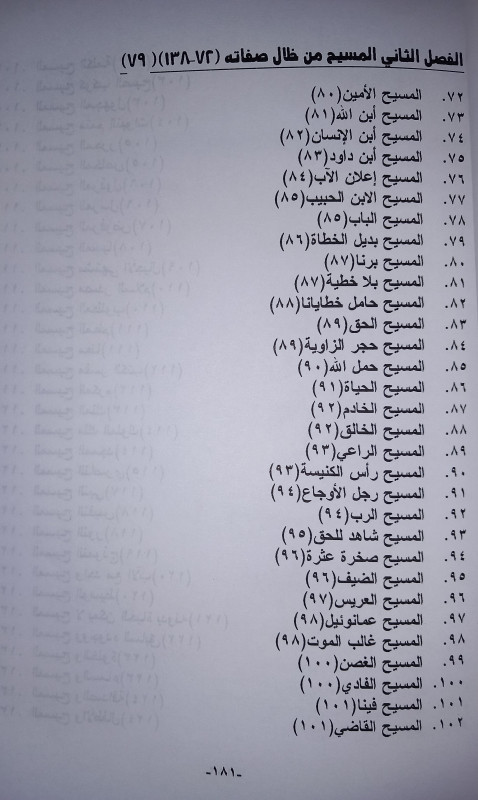 الفصل الثاني المسيح من خلال صفاته (٧٢-١٣٨)(٧٩)
٧٢. المسيح الأمين(٨٠)
٧٣. المسيح أبن الله(٨١)
٧٤. المسيح أبن الإنسان(٨٢)
٧٥. المسيح أبن داود(٨٣)
٧٦. المسيح إعلان الآب(٨٤)
٧٧. المسيح الابن الحبيب(٨٥)
٧٨. المسيح الباب(٨٥)
٧٩. المسيح بديل الخطاة(٨٦)
٨٠. المسيح برنا(٨٧)
٨١. المسيح بلا خطية(٨٧)
٨٢. المسيح حامل خطايانا(٨٨)
٨٣. المسيح الحق(٨٩)
٨٤. المسيح حجر الزاوية(٨٩)
٨٥. المسيح حمل الله(٩٠)
٨٦. المسيح الحياة(٩١)
٨٧. المسيح الخادم(٩٢)
٨٨. المسيح الخالق(٩٢)
٨٩. المسيح الراعي(٩٣)
٩٠. المسيح رأس الكنيسة(٩٣)
٩١. المسيح رجل الأوجاع(٩٤)
٩٢. المسيح الرب(٩٤)
٩٣. المسيح شاهد للحق(٩٥)
٩٤. المسيح صخرة عثرة(٩٦)
٩٥. المسيح الضيف(٩٦)
٩٦. المسيح العريس(٩٧)
٩٧. المسيح عمانوئيل(٩٨)
٩٨. المسيح غالب الموت(٩٨)
٩٩. المسيح الغصن(١٠٠)
١٠٠. المسيح الفادي(١٠٠)
١٠١. المسيح فينا(١٠١)
١٠٢. المسيح القاضي(١٠١)
-١٨١-